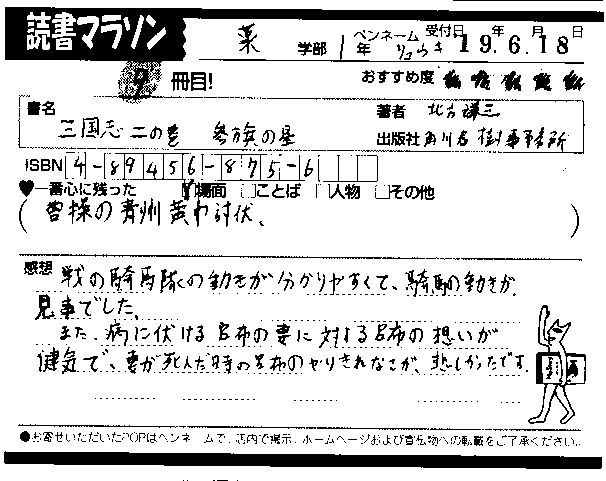 読書マラソン
薬 学部 1年 ペンネーム リュウキ 受付日 19年6月18日
9冊目! おすすめ度
書名 三国志 二の巻 参旗の星
著者 北方謙三
出版社 角川春樹事務所
ISBN 4-89456-875-6
♥一番心に残った 場面 ことば 人物 その他
(曹操の青州黄巾討伐。)
感想 戦の騎馬隊の動きが分かりやすくて、騎馬の動きが、
見事でした。
また、病に伏ける呂布の妻に対する呂布の想いが
健気で、妻が死んだ時の呂布のやりきれなさが、悲しかったです。
●お寄せいただいたPOPはペンネームで、店内で掲示、ホームページおよび宣伝物への転載をご了承ください。